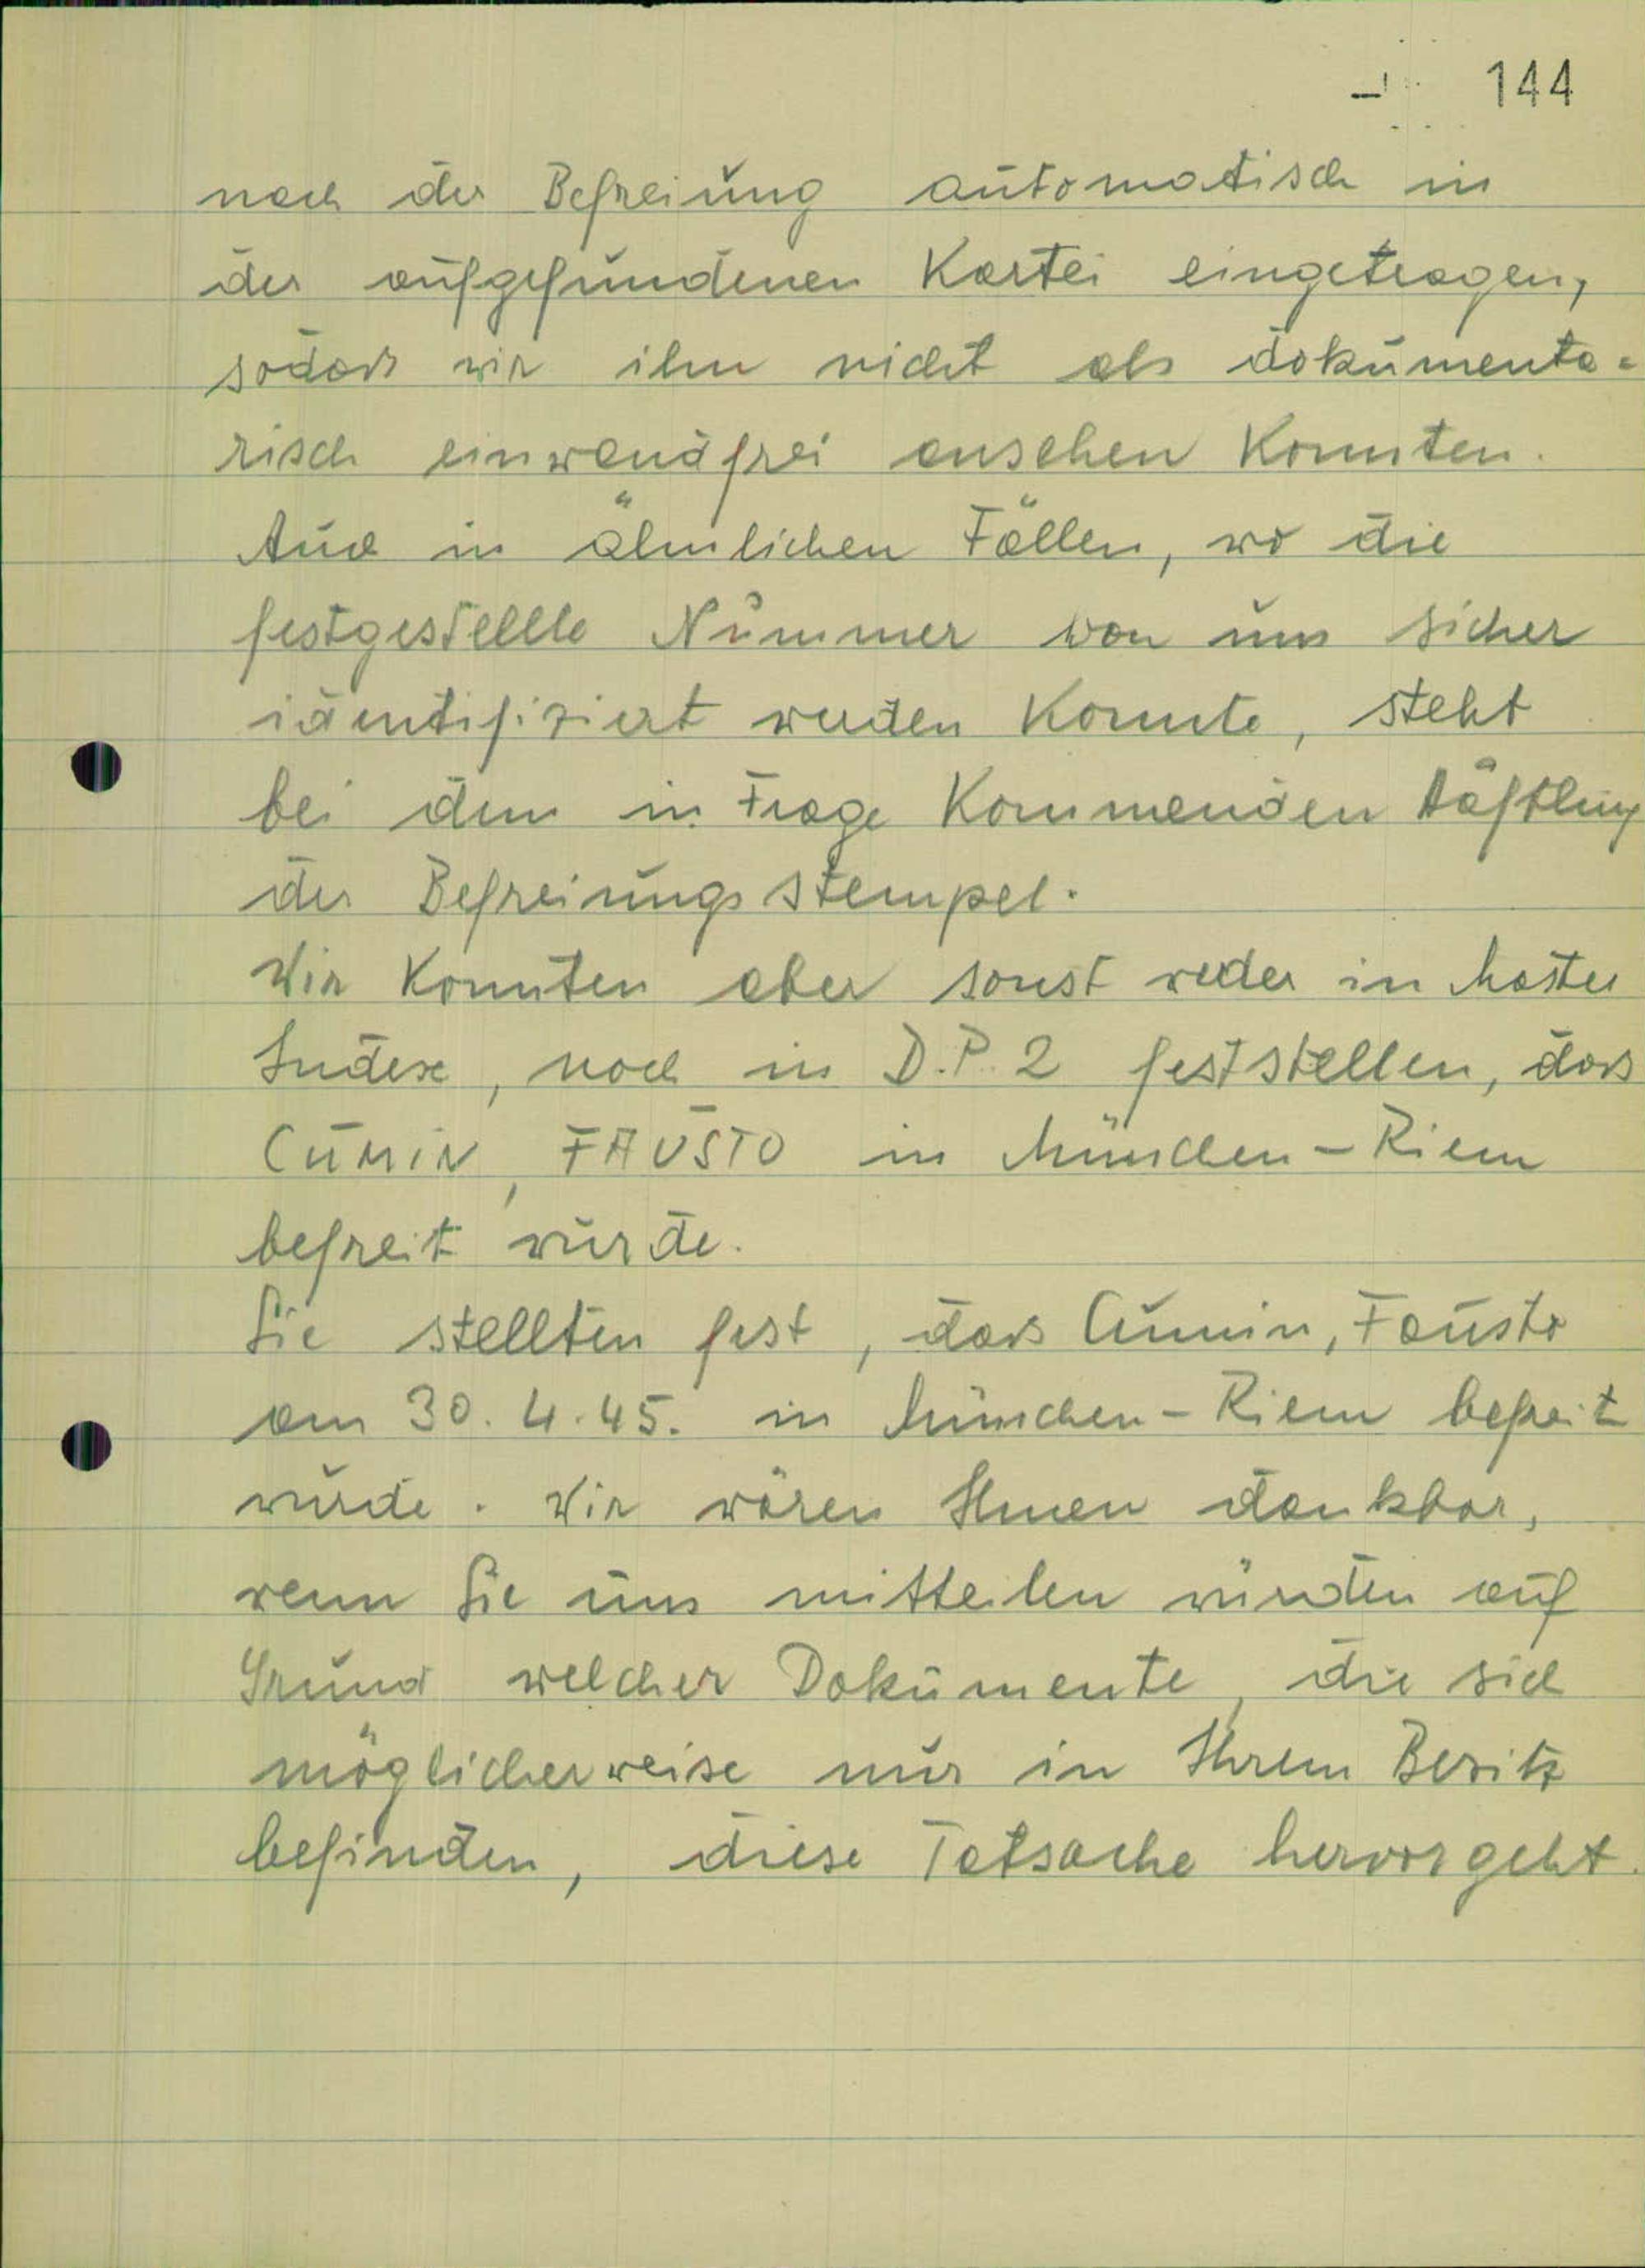 144
nach der Befreiung automatisch in
der aufgefundenen Kartei eingetragen,
sodass wir ihn nicht als dokumenta=
risch einwandfrei ansehen konnten.
Auch in ähnlichen Fällen, wo die
festgestellte Nummer von uns sicher
identifiziert werden konnte, steht
bei dem in Frage kommenden Häftling
der Befreiungsstempel.
Wir konnten aber sonst weder in Master
Index, noch in D.P. 2 feststellen, dass
CUMIN, FAUSTO in München-Riem
befreit wurde.
Sie stellten fest, dass Cumin, Fausto
am 30. 4. 45. in München-Riem befreit
wurde. Wir wären Ihnen dankbar,
wenn Sie uns mitteilen würden auf
Grund welcher Dokumente, die sich
möglicherweise nur in Ihrem Besitz
befinden, diese Tatsache hervorgeht.